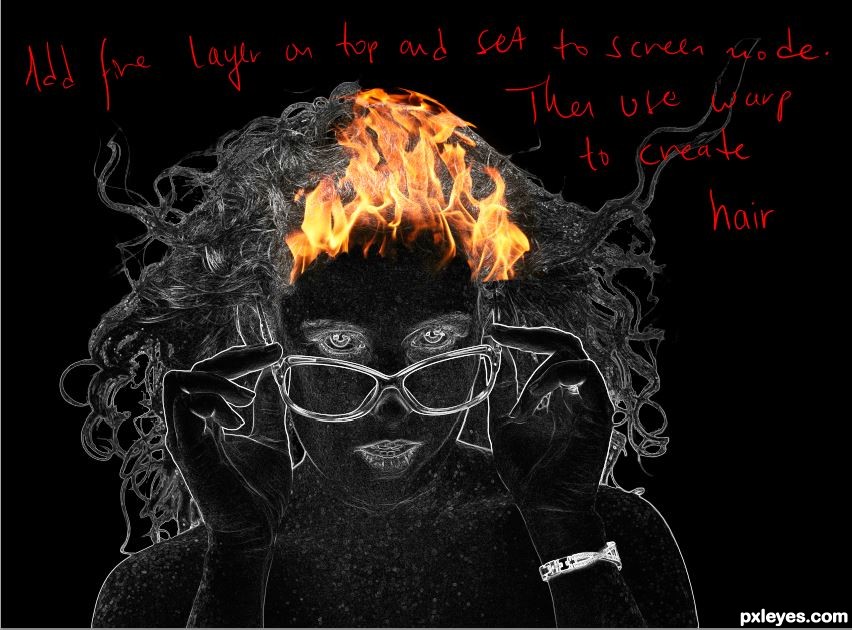 Add fire layer on top and set to screen mode.
Then use warp
to create
hair
pxleyes.com